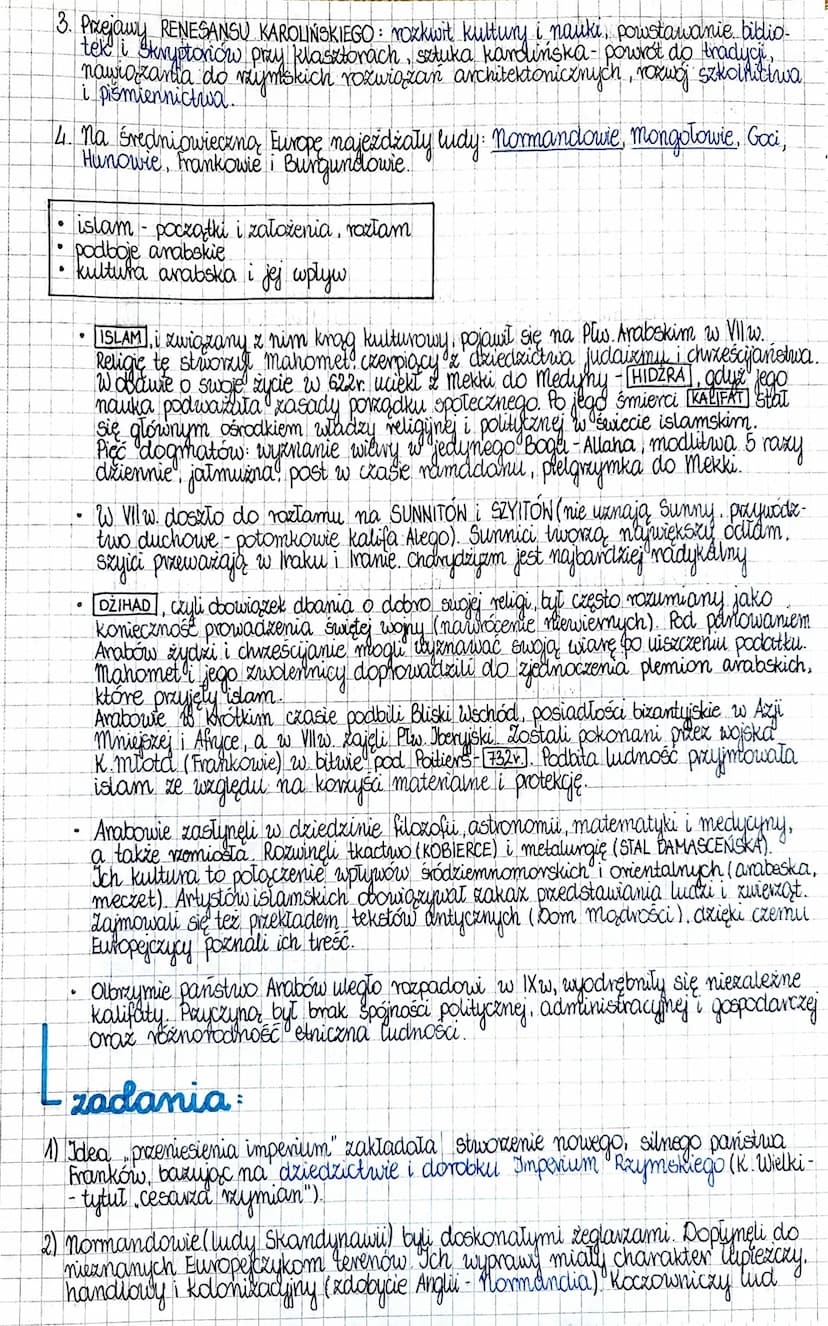 3. Przejawy RENESANSU KAROLIŃSKIEGO: rozkwit kultury i nauki, powstawanie biblio-
tek i skryptoriów przy klasztorach, sztuka karolińska - powrót do tradycji,
nawiązania do rzymskich rozwiązań architektonicznych, rozwój szkolnictwa
i piśmiennictwa.
4. Na średniowieczną Europę najeżdżały ludy: Normandowie, Mongołowie, Goci,
Hunowie, Frankowie i Burgundowie.
• islam - początki i założenia, rozłam
• podboje arabskie
• kultura arabska i jej wpływ
• ISLAM, i związany z nim krąg kulturowy, pojawił się na Płw. Arabskim w VII w.
Religię tę stworzył Mahomet, czerpiący z dziedzictwa judaizmu i chrześcijaństwa.
W obawie o swoje życie w 622r. uciekł z Mekki do Medyny - HIDŻRA, gdyż jego
nauka podważała zasady porządku społecznego. Po jego śmierci KALIFAT stał
się głównym ośrodkiem władzy religijnej i politycznej w świecie islamskim.
Pięć dogmatów: wyznanie wiary w jedynego Boga - Allaha, modlitwa 5 razy
dziennie, jałmużna, post w czasie ramadanu, pielgrzymka do Mekki.
• W VII w. doszło do rozłamu na SUNNITÓW i SZYITÓW (nie uznają Sunny, przywódz-
two duchowe - potomkowie kalifa Alego). Sunnici tworzą największy odłam,
szyici przeważają w Iraku i Iranie. Charydżyzm jest najbardziej radykalny
• DŻIHAD, czyli obowiązek dbania o dobro swojej religi, był często rozumiany jako
konieczność prowadzenia świętej wojny (nawrócenie niewiernych). Pod panowaniem
Arabów żydzi i chrześcijanie mogli wyznawać swoją wiarę po uiszczeniu podatku.
Mahomet i jego zwolennicy doprowadzili do zjednoczenia plemion arabskich,
które przyjęły islam.
Arabowie w krótkim czasie podbili Bliski Wschód, posiadłości bizantyjskie w Azji
Mniejszej i Afryce, a w VIIw. zajęli Płw. Iberyjski. Zostali pokonani przez wojska
K. Młota (Frankowie) w bitwie pod Poitiers - 732r. Podbita ludność przyjmowała
islam ze względu na korzyści materialne i protekcję.
• Arabowie zasłynęli w dziedzinie filozofii, astronomii, matematyki i medycyny,
a także rzemiosła. Rozwinęli tkactwo (KOBIERCE) i metalurgię (STAL DAMASCEŃSKA).
Ich kultura to połączenie wpływów śródziemnomorskich i orientalnych (arabeska,
meczet). Artystów islamskich obowiązywał zakaz przedstawiania ludzi i zwierząt.
Zajmowali się też przekładem tekstów antycznych (Dom mądrości), dzięki czemu
Europejczycy poznali ich treść.
• Olbrzymie państwo Arabów uległo rozpadowi w IXw, wyodrębniły się niezależne
kalifaty. Przyczyną był brak spójności politycznej, administracyjnej i gospodarczej
oraz różnorodność etniczna ludności.
zadania:
1) Idea „przeniesienia imperium" zakładała stworzenie nowego, silnego państwa
Franków, bazując na dziedzictwie i dorobku Imperium Rzymskiego (K. Wielki -
- tytuł „cesarza rzymian").
2) Normandowie (ludy Skandynawii) byli doskonałymi żeglarzami. Dopłynęli do
nieznanych Europejczykom terenów. Ich wyprawy miały charakter łupieżczy,
handlowy i kolonizacyjny (zdobycie Anglii - Normandia). Koczowniczy lud